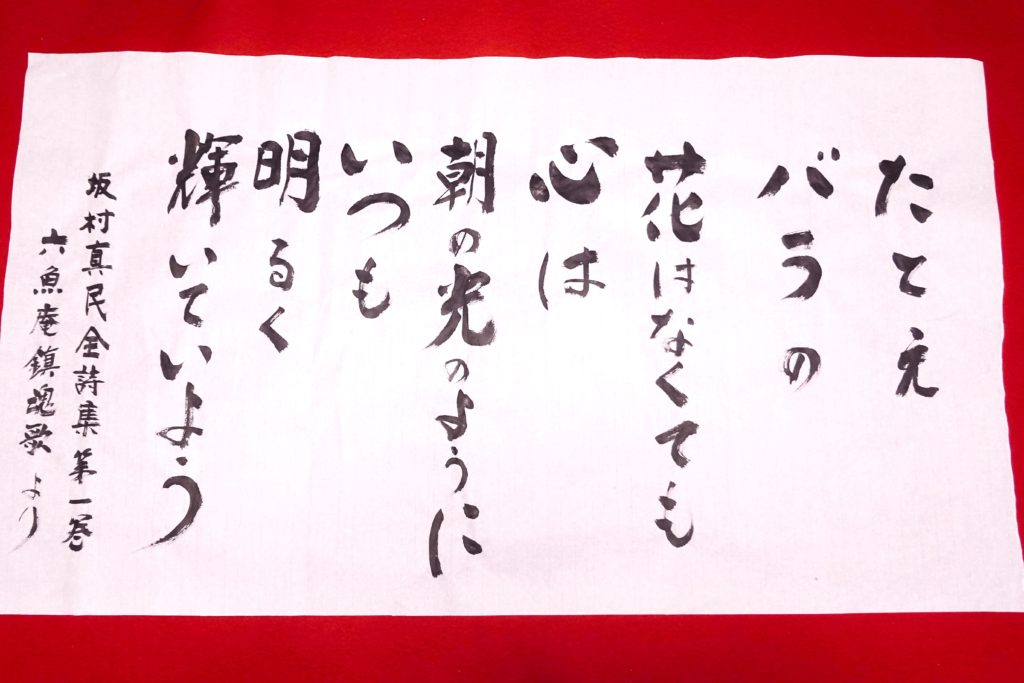 たとえ
バラの
花はなくても
心は
朝の光のように
いつも
明るく
輝いていよう
坂村真民全詩集第一巻
六魚庵鎮魂歌より